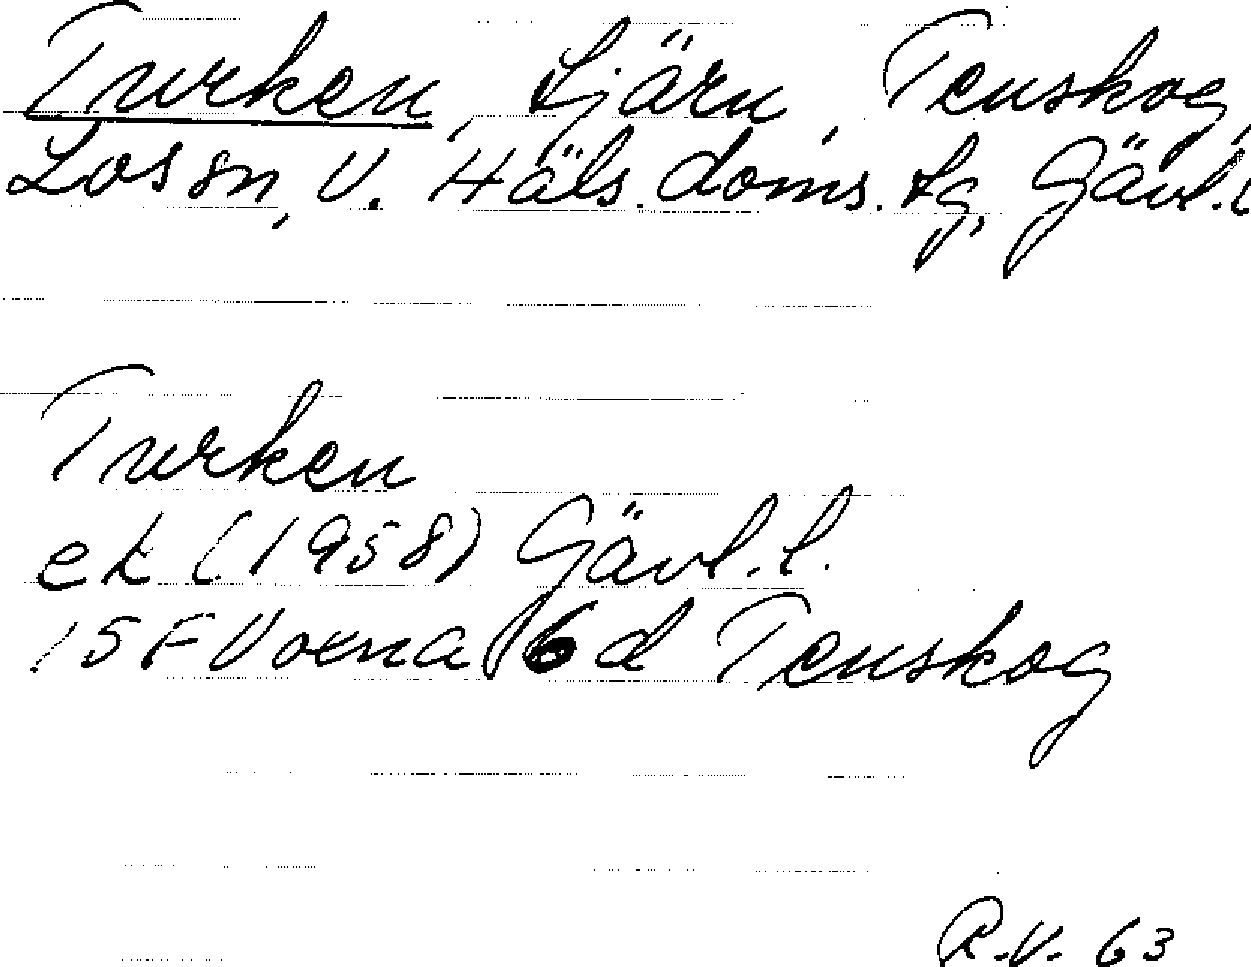 Turken, tjärn, Tenskog,
Los sn, V. Häls. doms. tg, Gävl. l
Turken
ek (1958) Gävl. l.
15 F Voxna 6 d Tenskog
R.V. 63